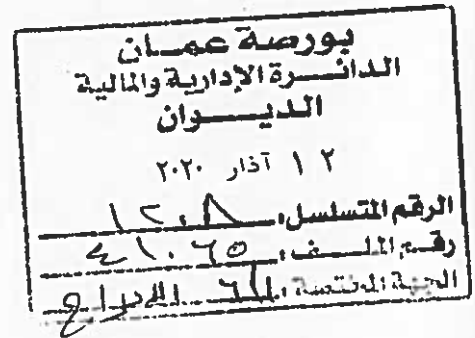 بورصة عمـان
الدائـــرة الإدارية والمالية
الديـــوان
١٢ آذار ٢٠٢٠
الرقم المتسلسل: ١٢٠٨
رقـم الملـف: ٤١٠٦٥
الجهة المختصة: الإدراج